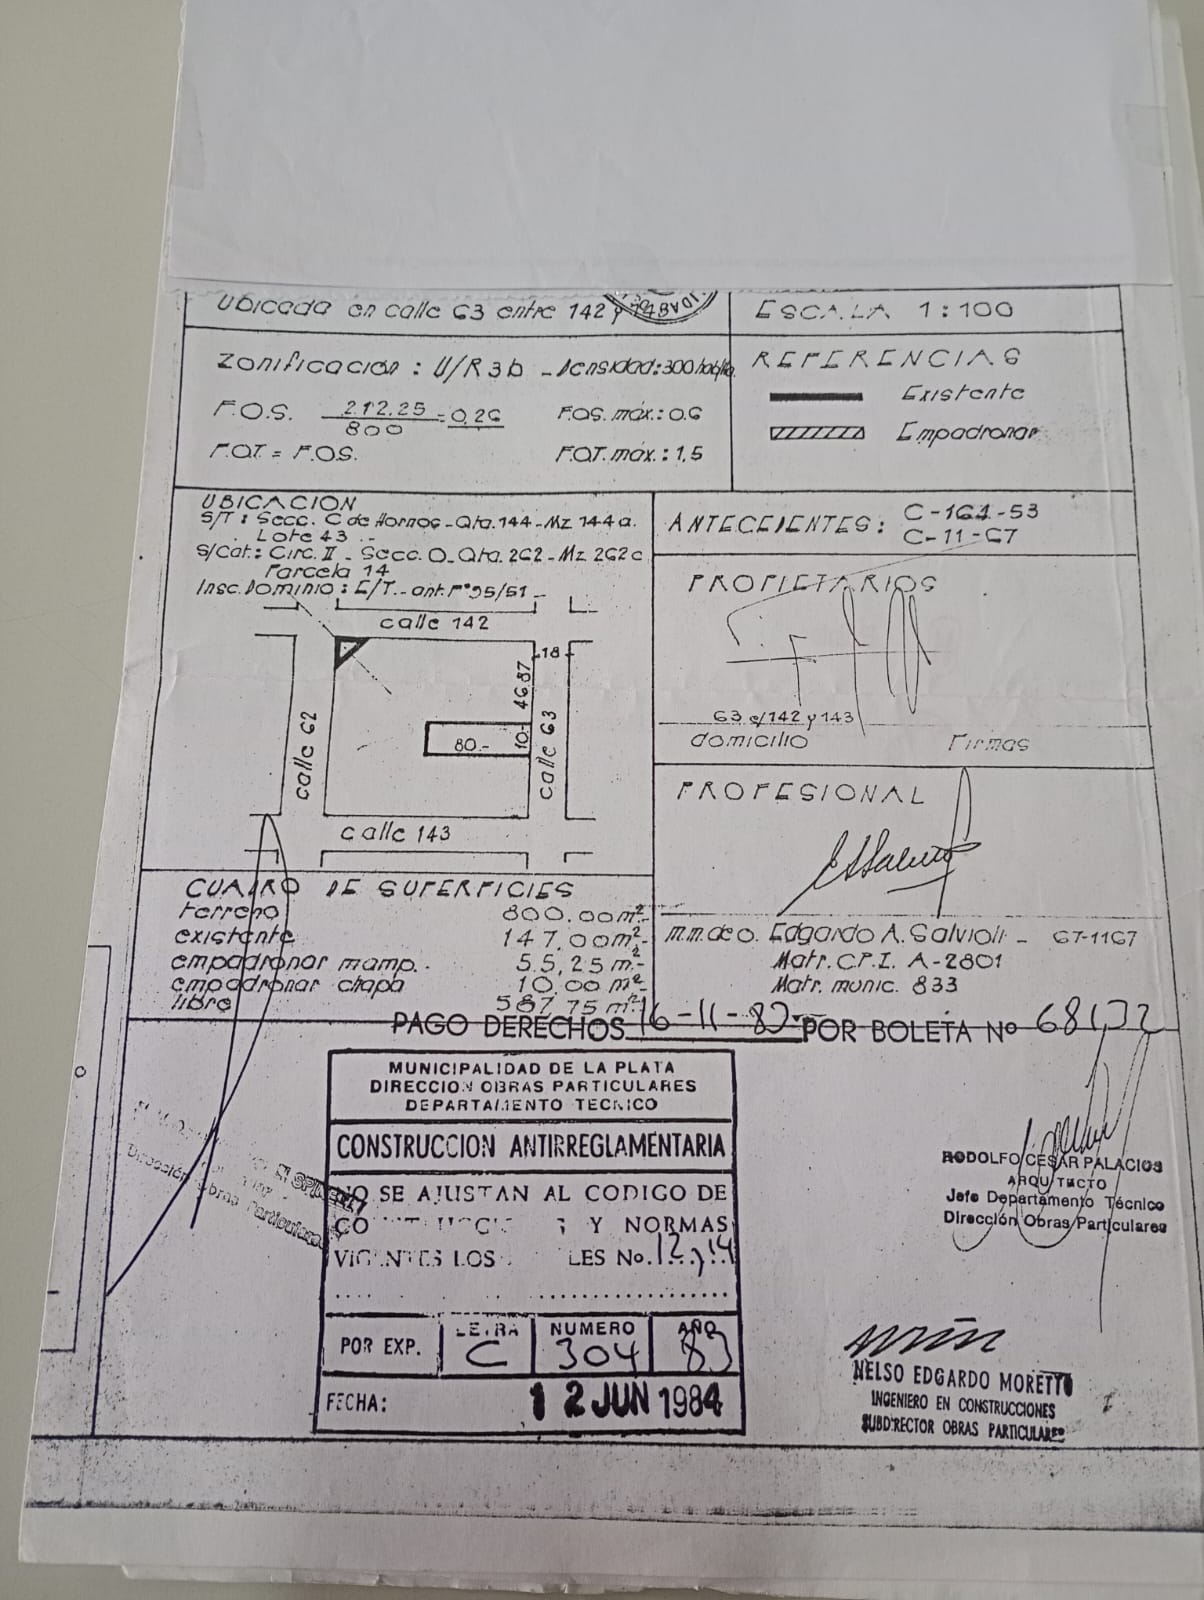 Ubicada en calle 63 entre 142 y
ESCALA 1:100
Zonificación: U/R3b - Densidad: 300 hab/ha
F.O.S. 212.25 = 0,26
800
F.O.S. máx.: 0.6
F.O.T = F.O.S.
F.O.T. máx.: 1,5
REFERENCIAS
Existente
Empadronar
UBICACION
S/T: Secc. C de Hornos - Qta. 144 - Mz 144 a.
Lote 43.-
S/Cat.: Circ. II - Secc. O - Qta. 262 - Mz 262c
Parcela 14
Insc. Dominio: E/T.- ant. Fº 95/51 -
calle 142
calle 62
18
46.87
80.-
10.-
calle 63
calle 143
ANTECEDENTES: C-161-53
C-11-67
PROPIETARIOS
63 e/142 y 143
domicilio Firmas
PROFESIONAL
m.m. de o. Edgardo A. Salvioli - 67-1167
Matr. C.P.I. A-2801
Matr. munic. 833
CUADRO DE SUPERFICIES
terreno 800.00 m²-
existente 147,00 m²-
empadronar mamp. 55,25 m²-
empadronar chapa 10,00 m²
libre 587.75 m²
PAGO DERECHOS 16-11-83 POR BOLETA Nº
MUNICIPALIDAD DE LA PLATA
DIRECCION OBRAS PARTICULARES
DEPARTAMENTO TECNICO
CONSTRUCCION ANTIRREGLAMENTARIA
NO SE AJUSTAN AL CODIGO DE
Y NORMAS
VIGENTES LOS No. 12 y 14
POR EXP. LETRA C NUMERO 304 AÑO 83
FECHA: 12 JUN 1984
Dirección Obras Particulares
RODOLFO CESAR PALACIOS
ARQUITECTO
Jefe Departamento Técnico
Dirección Obras Particulares
NELSO EDGARDO MORETTI
INGENIERO EN CONSTRUCCIONES
SUBDIRECTOR OBRAS PARTICULARES